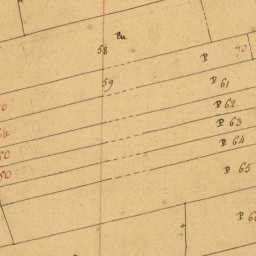 Pu
58
P
70
59
P 61
P 62
P 63
P 64
P 65
P